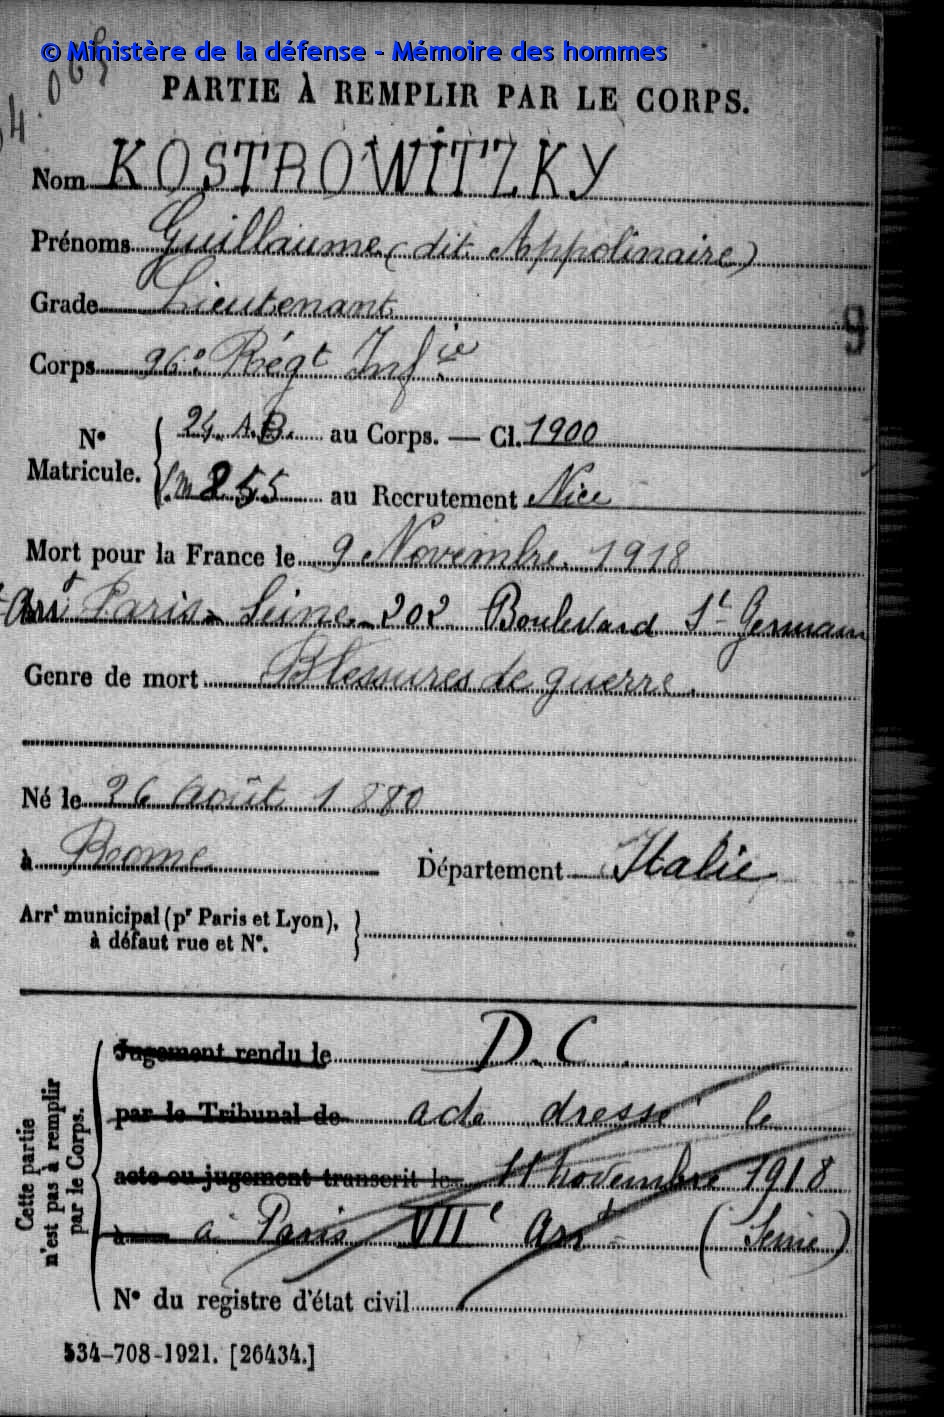 © Ministère de la défense - Mémoire des hommes
PARTIE À REMPLIR PAR LE CORPS.
Nom KOSTROWITZKY
Prénoms Guillaume (dit Appolinaire)
Grade Lieutenant
9
Corps 96e Régt Infie
No
Matricule.
24. A.B. au Corps. — Cl. 1900
855 au Recrutement Nice
Mort pour la France le 9 Novembre 1918
Arrt Paris - Seine - 202 Boulevard St Germain
Genre de mort Blessures de guerre.
Né le 26 Août 1880
à Rome Département Italie
Arrt municipal (pr Paris et Lyon),
à défaut rue et No.
Cette partie
n'est pas à remplir
par le Corps.
Jugement rendu le D.C.
par le Tribunal de acte dressé le
acte ou jugement transcrit le 11 novembre 1918
à à Paris VIIe Arrt (Seine)
No du registre d'état civil
534-708-1921. [26434.]